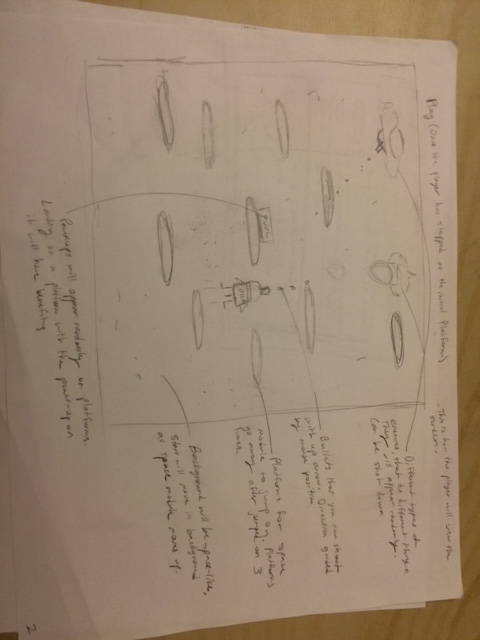 Play (Once the player has stepped on the initial platform)
This is how the player will view the
screen.
Different types of
enemies, that do different things
They will appear randomly.
Can be shot down
Bullets that you can shoot
with up arrow. Direction guided
by mouse position
Platforms for space
mobile to jump on, platforms
go away after jumped on 3
times.
Background will be space-like,
Stars will move in background
as space mobile moves up.
Powerups will appear randomly on platforms.
Landing on a platform with the power-up on
it will have benefits
2